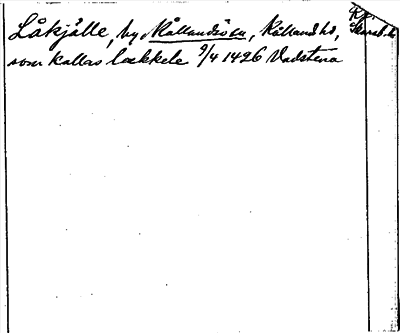 Låkjälle, by Kållandsö sn, Kålland hd,
som kallas læckele 9/4 1426 Vadstena
Skarab. l.